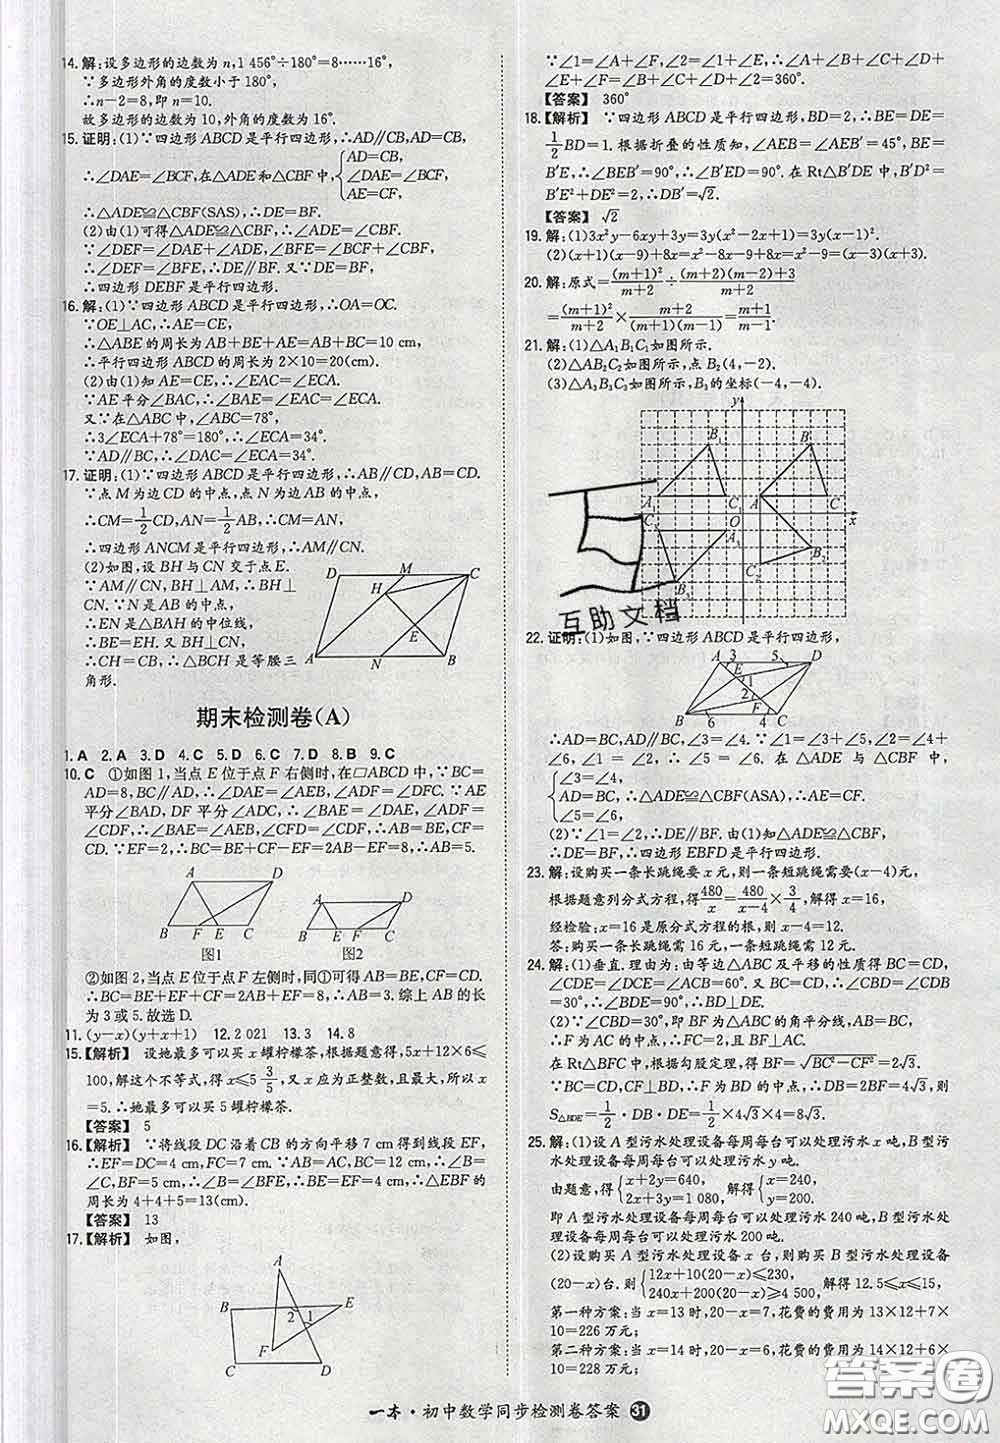 14.解:设多边形的边数为n,1 456°÷180°=8……16°,
∵多边形外角的度数小于180°,
∴n-2=8,即n=10.
故多边形的边数为10,外角的度数为16°.
15.证明:(1)∵四边形ABCD是平行四边形,∴AD∥CB,AD=CB,
∴∠DAE=∠BCF,在△ADE和△CBF中,{AD=CB, ∠DAE=∠BCF, AE=CF,
∴△ADE≌△CBF(SAS),∴DE=BF.
(2)由(1)可得△ADE≌△CBF,∴∠ADE=∠CBF.
∵∠DEF=∠DAE+∠ADE,∠BFE=∠BCF+∠CBF,
∴∠DEF=∠BFE,∴DE∥BF.又∵DE=BF,
∴四边形DEBF是平行四边形.
16.解:(1)∵四边形ABCD是平行四边形,∴OA=OC.
∵OE⊥AC,∴AE=CE,
∴△ABE的周长为AB+BE+AE=AB+BC=10 cm,
∴平行四边形ABCD的周长为2×10=20(cm).
(2)由(1)知AE=CE,∴∠EAC=∠ECA.
∵AE平分∠BAC,∴∠BAC=2∠EAC=2∠ECA.
又∵在△ABC中,∠ABC=78°,
∴3∠ECA+78°=180°,∴∠ECA=34°.
∵AD∥BC,∴∠DAC=∠ECA=34°.
17.证明:(1)∵四边形ABCD是平行四边形,∴AB∥CD,AB=CD.
∵点M为边CD的中点,点N为边AB的中点,
∴CM=1/2CD,AN=1/2AB,∴CM=AN,
∴四边形ANCM是平行四边形,∴AM∥CN.
(2)如图,设BH与CN交于点E.
∵AM∥CN,BH⊥AM,∴BH⊥
CN.∵N是AB的中点,
∴EN是△BAH的中位线,
∴BE=EH.又∵BH⊥CN,
∴CH=CB,∴△BCH是等腰三
角形.
D M C
H
E
A N B
期末检测卷(A)
1.A 2.A 3.D 4.C 5.D 6.C 7.D 8.B 9.C
10.C ①如图1,当点E位于点F右侧时,在□ABCD中,∵BC=
AD=8,BC∥AD,∴∠DAE=∠AEB,∠ADF=∠DFC.∵AE
平分∠BAD,DF平分∠ADC,∴∠BAE=∠DAE,∠ADF=
∠CDF,∴∠BAE=∠AEB,∠CFD=∠CDF,∴AB=BE,CF=
CD.∵EF=2,∴BC=BE+CF-EF=2AB-EF=8,∴AB=5.
A D A D
B F E C B E F C
图1 图2
②如图2,当点E位于点F左侧时,同①可得AB=BE,CF=CD.
∴BC=BE+EF+CF=2AB+EF=8,∴AB=3.综上AB的长
为3或5.故选D.
11.(y-x)(y+x+1) 12.2 021 13.3 14.8
15.【解析】 设她最多可以买x罐柠檬茶,根据题意得,5x+12×6≤
100,解这个不等式,得x≤5 3/5,又x应为正整数,且最大,所以x
=5.∴她最多可以买5罐柠檬茶.
【答案】 5
16.【解析】 ∵将线段DC沿着CB的方向平移7 cm得到线段EF,
∴EF=DC=4 cm,FC=7 cm.∵AB=AC,BC=12 cm,∴∠B=
∠C,BF=5 cm,∴∠B=∠BFE,∴BE=EF=4 cm,∴△EBF的
周长为4+4+5=13(cm).
【答案】 13
17.【解析】 如图,
A
B 2 1 E
F
C D
∵∠1=∠A+∠F,∠2=∠1+∠E,∴∠2=∠A+∠E+∠F.
∵∠2+∠B+∠C+∠D=360°,∴∠A+∠B+∠C+∠D+
∠E+∠F=∠B+∠C+∠D+∠2=360°.
【答案】 360°
18.【解析】 ∵四边形ABCD是平行四边形,BD=2,∴BE=DE=
1/2BD=1.根据折叠的性质知,∠AEB=∠AEB′=45°,BE=
B′E,∴∠BEB′=90°,∴∠B′ED=90°.在Rt△B′DE中,B′D²=
B′E²+DE²=2,∴DB′=√2.
【答案】 √2
19.解:(1)3x²y-6xy+3y=3y(x²-2x+1)=3y(x-1)².
(2)(x+1)(x-9)+8x=x²-9x+x-9+8x=x²-9=(x-3)(x+3).
20.解:原式=(m+1)²/(m+2)÷((m+2)(m-2)+3)/(m+2)
=(m+1)²/(m+2)×(m+2)/((m+1)(m-1))=(m+1)/(m-1).
21.解:(1)△A₁B₁C₁如图所示.
(2)△AB₂C₂如图所示,点B₂(4,-2).
(3)△A₃B₃C₃如图所示,B₃的坐标(-4,-4).
y
B₁ B
A₁ C₁ A C
C₃ O x
A₃ B₂
C₂
B₃
互助文档
22.证明:(1)如图,∵四边形ABCD是平行四边形,
A 3 5 D
E 1
2 F
B 6 4 C
∴AD=BC,AD∥BC,∴∠3=∠4.∵∠1=∠3+∠5,∠2=∠4+
∠6,∠1=∠2,∴∠5=∠6.在△ADE与△CBF中,
{∠3=∠4, AD=BC, ∠5=∠6, ∴△ADE≌△CBF(ASA),∴AE=CF.
(2)∵∠1=∠2,∴DE∥BF.由(1)知△ADE≌△CBF,
∴DE=BF,∴四边形EBFD是平行四边形.
23.解:设购买一条长跳绳要x元,则一条短跳绳需(x-4)元,
根据题意列分式方程,得480/x=480/(x-4)×3/4,解得x=16,
经检验:x=16是原分式方程的根,则x-4=12.
答:购买一条长跳绳需16元,一条短跳绳需12元.
24.解:(1)垂直.理由为:由等边△ABC及平移的性质得BC=CD,
∠CDE=∠DCE=∠ACB=60°.又∵BC=CD,∴∠CBD=∠CDB
=30°,∴∠BDE=90°,∴BD⊥DE.
(2)∵∠CBD=30°,即BF为△ABC的角平分线,AB=BC,
∴F为AC的中点,∴FC=2,且BF⊥AC.
在Rt△BFC中,根据勾股定理,得BF=√(BC²-CF²)=2√3.
∵BC=CD,CF⊥BD,∴F为BD的中点,∴DB=2BF=4√3,则
S△BDE=1/2·DB·DE=1/2×4√3×4=8√3.
25.解:(1)设A型污水处理设备每周每台可以处理污水x吨,B型污
水处理设备每周每台可以处理污水y吨.
由题意,得{x+2y=640, 2x+3y=1 080, 解得{x=240, y=200.
即A型污水处理设备每周每台可以处理污水240吨,B型污水处
理设备每周每台可以处理污水200吨.
(2)设购买A型污水处理设备x台,则购买B型污水处理设备
(20-x)台.则{12x+10(20-x)≤230, 240x+200(20-x)≥4 500, 解得12.5≤x≤15,
第一种方案:当x=13时,20-x=7,花费的费用为13×12+7×
10=226万元;
第二种方案:当x=14时,20-x=6,花费的费用为14×12+6×
10=228万元;
一本·初中数学同步检测卷答案 31
答案圈
MXQE.COM